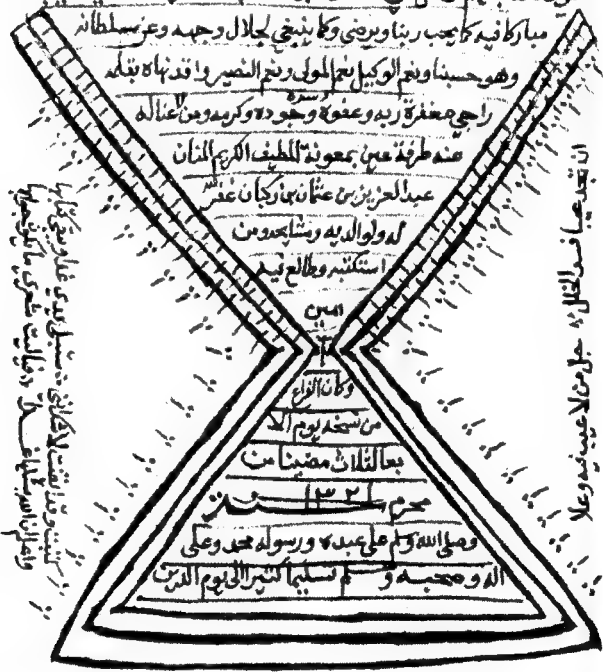 مباركا فيه كما يحب ربنا ويرضى وكما ينبغي لجلال وجهه وعز سلطانه
وهو حسبنا ونعم الوكيل نعم المولى ونعم النصير بقلمه
راجي مغفرة ربه وعفوه وستره وجوده وكرمه ومن لا غناله
عنه طرفة عين بمعونة اللطيف الكريم المنان
عبد العزيز بن عثمان بن ركبان غفر الله
له ولوالديه ومشايخه ومن
استكتبه وطالع فيه
امين
وكان الفراغ
من نسخه يوم
الثلاث مضين من
محرم سنة
وصلى الله وسلم على عبده ورسوله محمد وعلى
اله وصحبه وسلم تسليما كثيرا الى يوم الدين
ان تجد عيبا فسد الخللا جل من لا عيب فيه وعلا
كتبت وقد ايقنت يدي غدا ويبقى كتابها
واعلم ان الله سائلها غدا فيا ليت شعري ما يكون جوابها